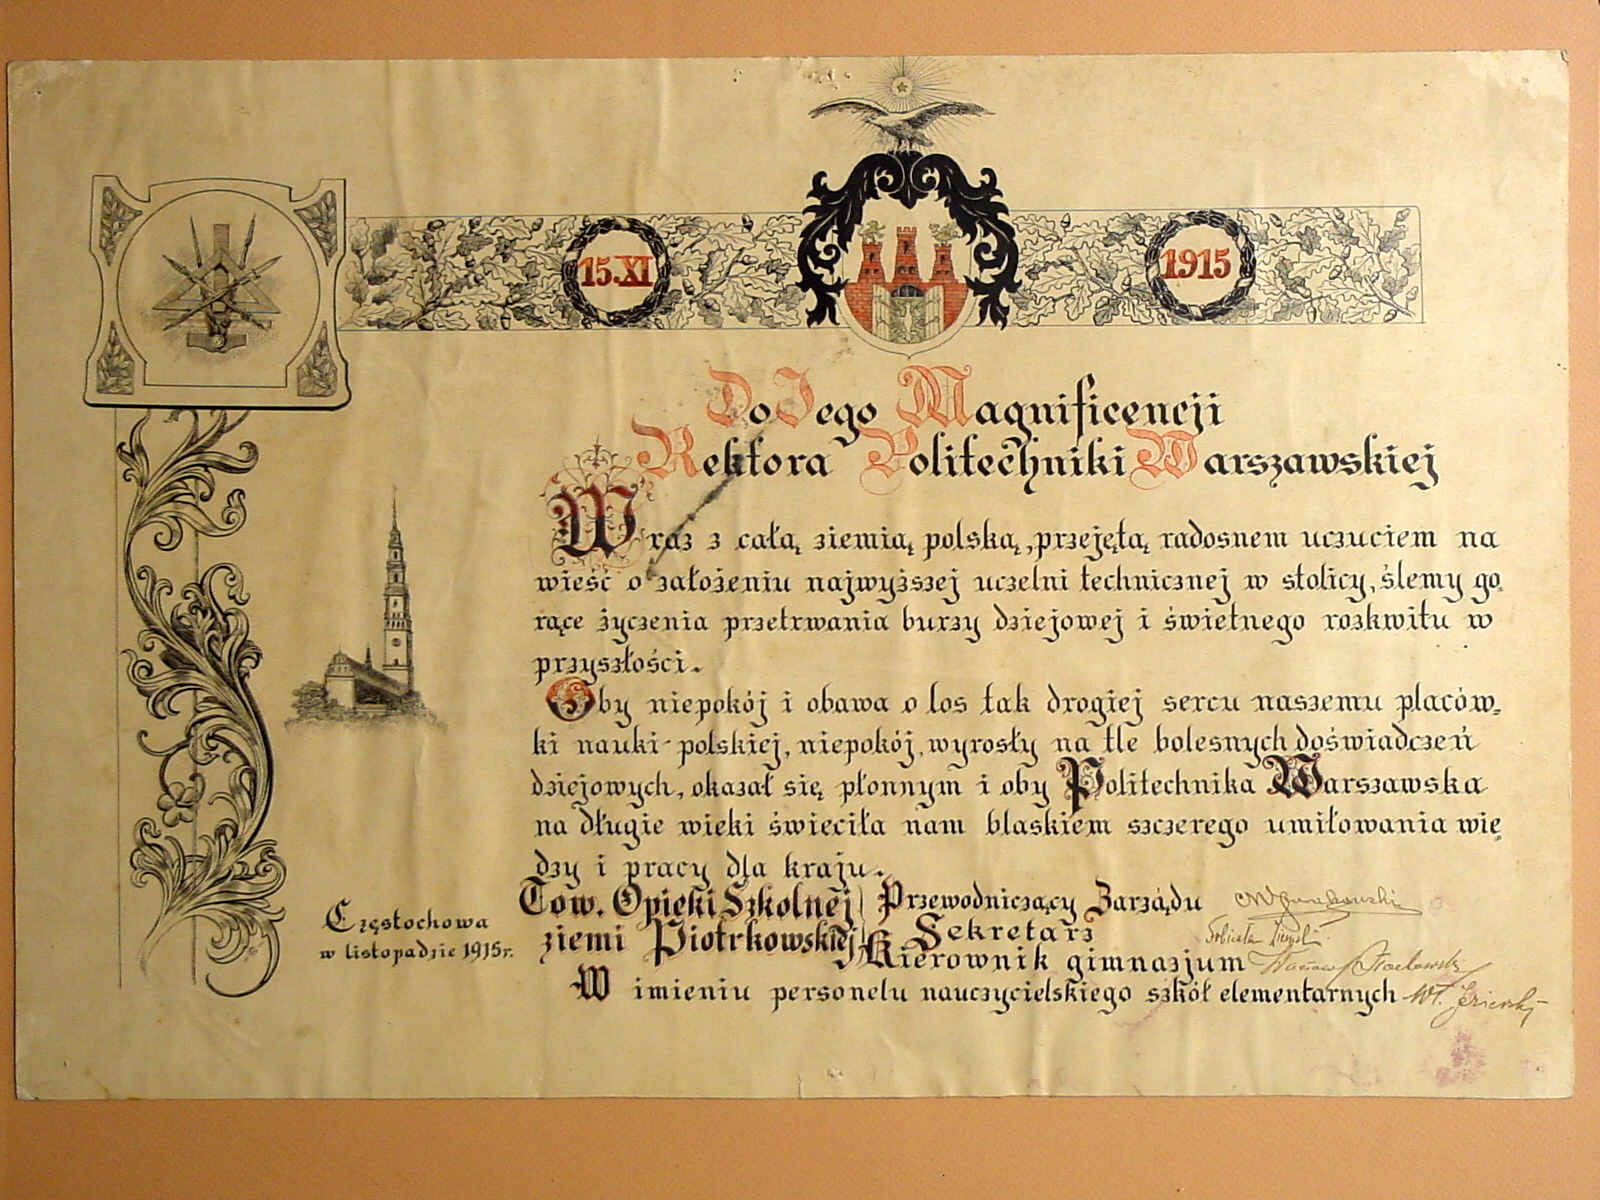 15.XI
1915
Do Jego Magnificencji
Rektora Politechniki Warszawskiej
Wraz z całą ziemią polską, przejętą radosnem uczuciem na
wieść o założeniu najwyższej uczelni technicznej w stolicy, ślemy go-
rące życzenia przetrwania burzy dziejowej i świetnego rozkwitu w
przyszłości.
Oby niepokój i obawa o los tak drogiej sercu naszemu placów-
ki nauki polskiej, niepokój, wyrosły na tle bolesnych doświadczeń
dziejowych, okazał się płonnym i oby Politechnika Warszawska
na długie wieki świeciła nam blaskiem szczerego umiłowania wie-
dzy i pracy dla kraju.
Tow. Opieki Szkolnej
ziemi Piotrkowskiej
Przewodniczący Zarządu
Sekretarz
Kierownik gimnazjum
W imieniu personelu nauczycielskiego szkół elementarnych
Częstochowa
w listopadzie 1915 r.